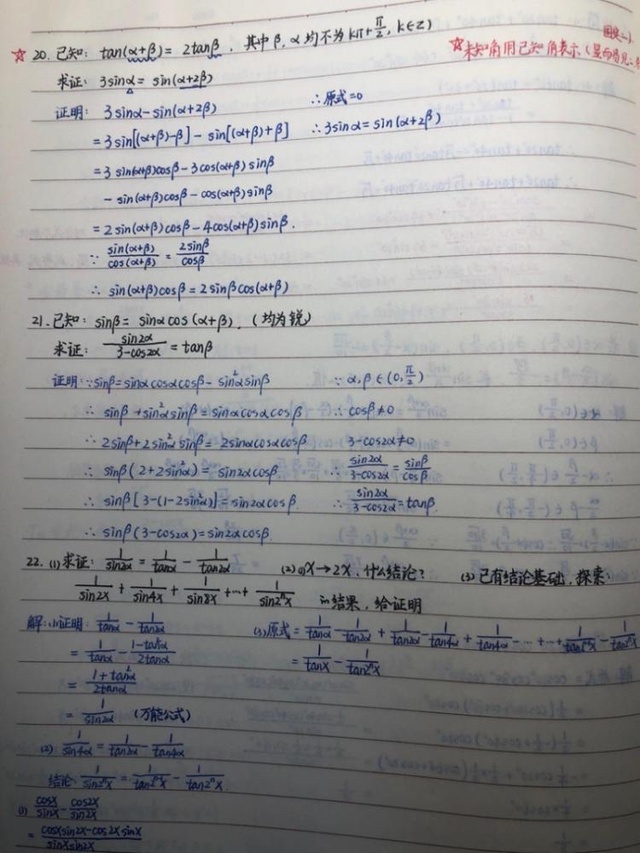 ☆ 20. 已知: tan(α+β) = 2tanβ , 其中 β, α 均不为 kπ+π/2, k∈Z)
☆ 未知角用已知角表示
求证: 3sinα = sin(α+2β)
证明: 3sinα-sin(α+2β)
= 3sin[(α+β)-β] - sin[(α+β)+β]
= 3 sin(α+β)cosβ - 3cos(α+β) sinβ
- sin(α+β)cosβ - cos(α+β)sinβ
= 2sin(α+β)cosβ - 4cos(α+β)sinβ.
∵ sin(α+β)/cos(α+β) = 2sinβ/cosβ
∴ sin(α+β)cosβ = 2sinβcos(α+β)
∴ 原式=0
∴ 3sinα = sin(α+2β)
21. 已知: sinβ = sinαcos(α+β). (均为锐)
求证: sin2α/(3-cos2α) = tanβ
证明: ∵ sinβ = sinαcosαcosβ - sin²αsinβ
∴ sinβ + sin²αsinβ = sinαcosαcosβ
∴ 2sinβ + 2sin²αsinβ = 2sinαcosαcosβ
∴ sinβ(2+2sin²α) = sin2αcosβ
∴ sinβ[3-(1-2sin²α)] = sin2αcosβ
∴ sinβ(3-cos2α) = sin2αcosβ
∵ α,β∈(0,π/2)
∴ cosβ≠0
3-cos2α≠0
∴ sin2α/(3-cos2α) = sinβ/cosβ
∴ sin2α/(3-cos2α) = tanβ.
22. (1) 求证: 1/sin2α = 1/tanα - 1/tan2α
(2) (1) X→2X, 什么结论?
(3) 已有结论基础, 探索:
1/sin2x + 1/sin4x + 1/sin8x + … + 1/sin2ⁿx
结果, 给证明
解: (1) 证明: 1/tanα - 1/tan2α
= 1/tanα - (1-tan²α)/2tanα
= (1+tan²α)/2tanα
= 1/sin2α (万能公式)
(2): 1/sin4α = 1/tan2α - 1/tan4α
结论: 1/sin2ⁿx = 1/tan2ⁿ⁻¹x - 1/tan2ⁿx
(3) 原式 = 1/tanα - 1/tan2α + 1/tan2α - 1/tan4α + 1/tan4α - … + … + 1/tan2ⁿ⁻¹x - 1/tan2ⁿx
= 1/tanx - 1/tan2ⁿx
(1) cosx/sinx - cos2x/sin2x
= (cosxsin2x-cos2xsinx)/sinxsin2x